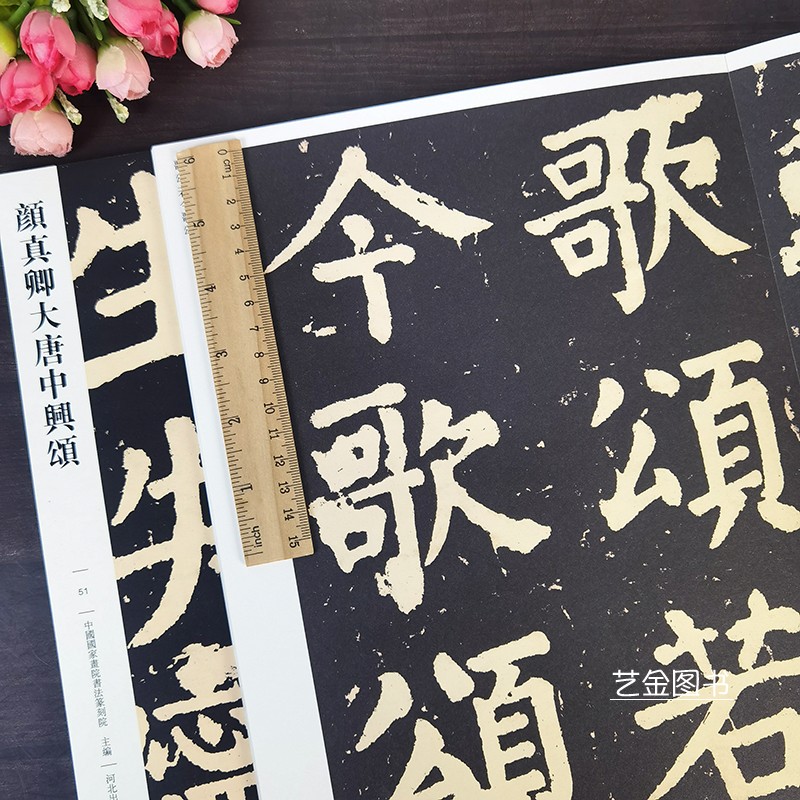 顔真卿大唐中興頌
51
中國國家畫院書法篆刻院 主編
河北出
生失寧
歌頌若
今歌頌
0 cm 1 2 3 4 5 6 7 8 9 10 11 12 13 14 15
inch 1 2 3 4 5 6
艺金图书